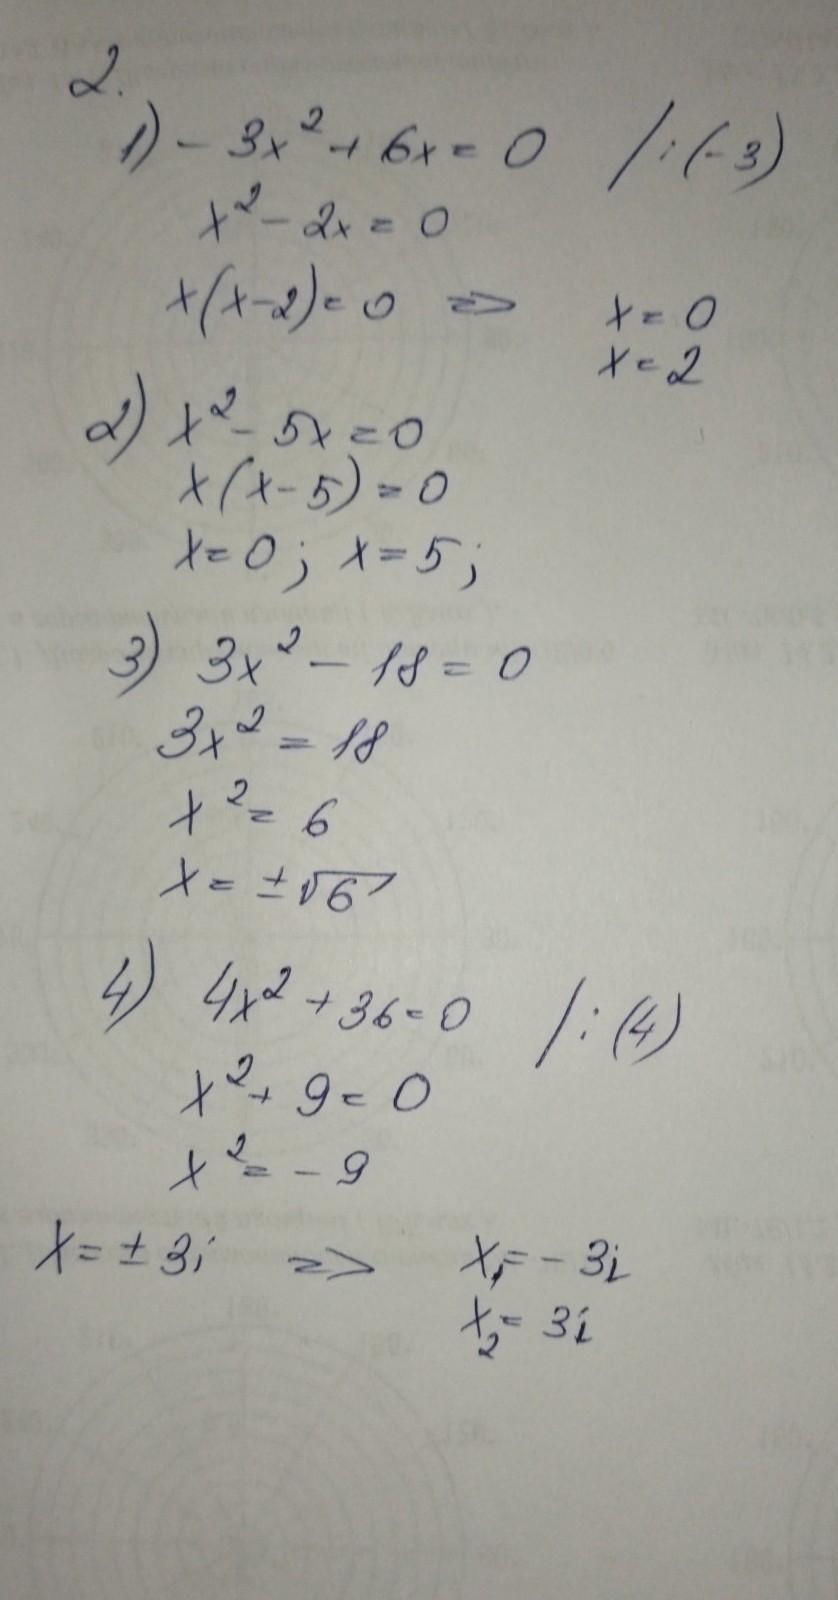 2.
1) - 3x² + 6x = 0 /:(-3)
x² - 2x = 0
x(x-2) = 0 => x = 0
x = 2
2) x² - 5x = 0
x(x-5) = 0
x = 0; x = 5;
3) 3x² - 18 = 0
3x² = 18
x² = 6
x = ±√6
4) 4x² + 36 = 0 /:(4)
x² + 9 = 0
x² = - 9
x = ± 3i => x₁ = - 3i
x₂ = 3i